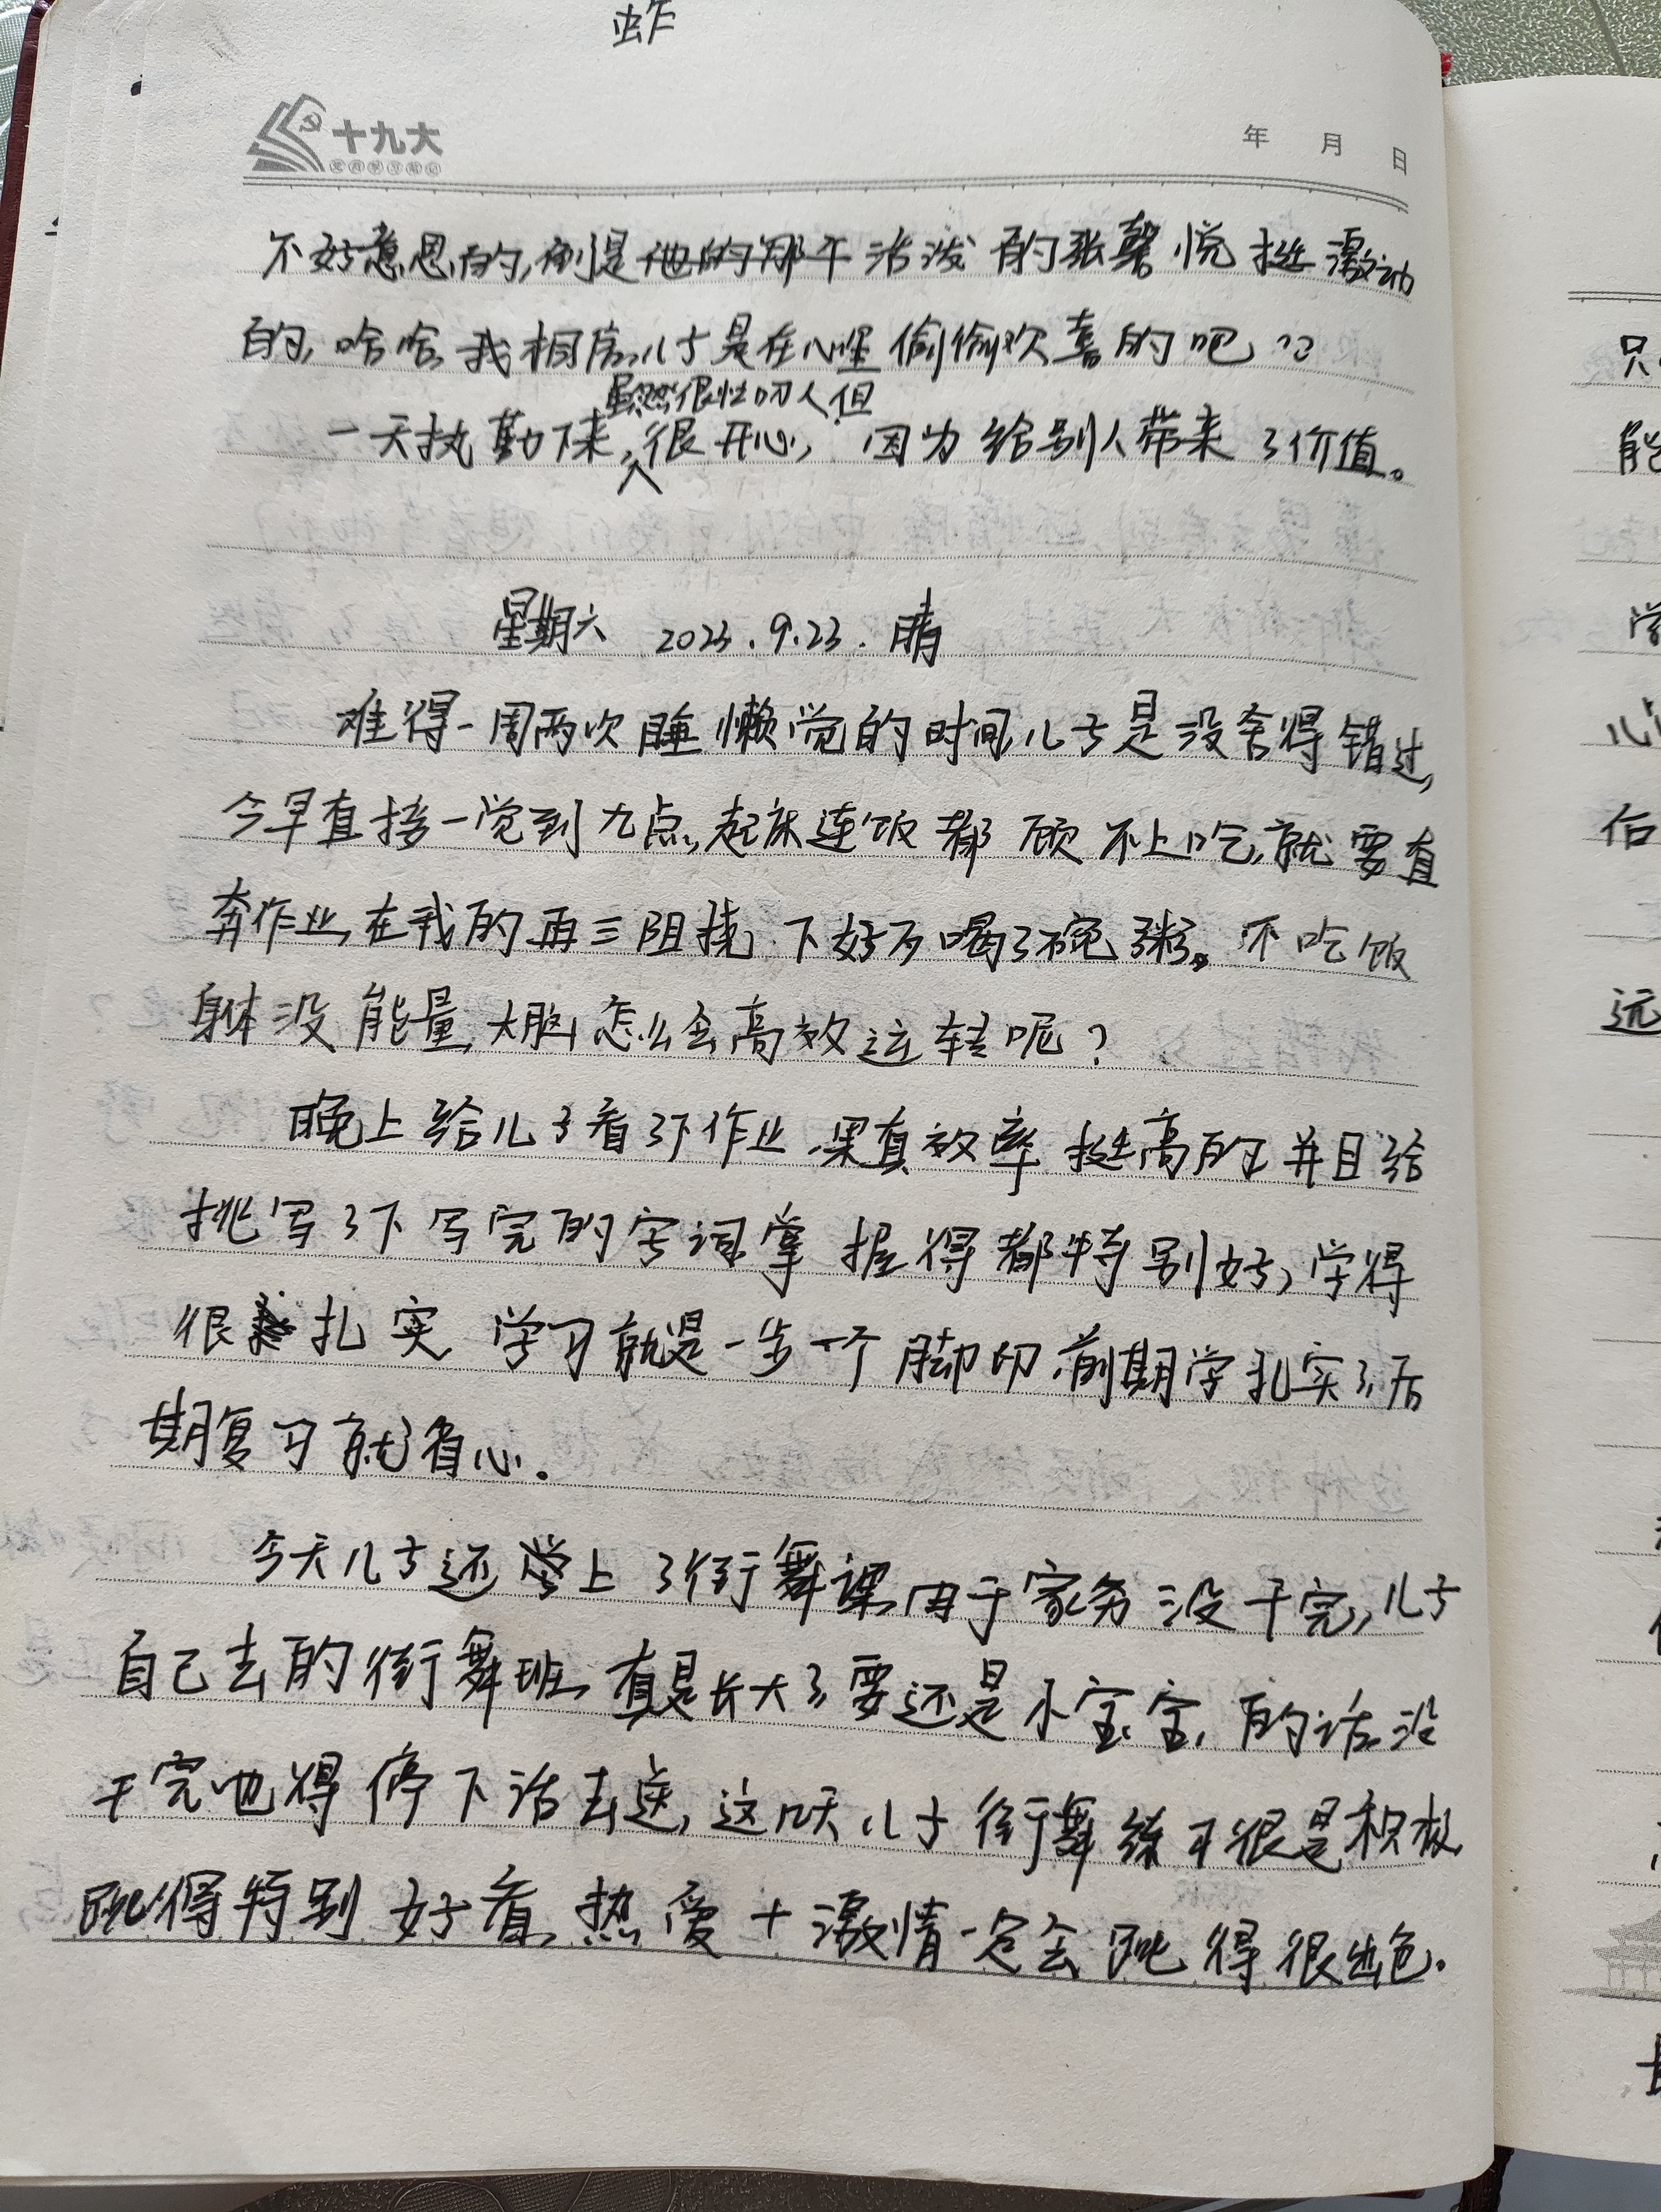 蚱
十九大
年 月 日
不好意思的,倒是他的那个活泼的张馨悦挺激动
的,哈哈,我相信儿子是在心里偷偷欢喜的吧??
虽然很忙叨人但
一天执勤下来,很开心,因为给别人带来了价值。
星期六 2023.9.23. 晴
难得一周两次睡懒觉的时间,儿子是没舍得错过,
今早直接一觉到九点,起床连饭都顾不上吃,就要直
奔作业,在我的再三阻挠下好歹喝了碗粥。不吃饭
身体没能量,大脑怎么会高效运转呢?
晚上给儿子看了下作业,果真效率挺高的,并且给
挑写了下写完的字词掌握得都特别好,学得
很扎实,学习就是一步一个脚印,前期学扎实了,后
期复习就省心。
今天儿子还上了街舞课,由于家务没干完,儿子
自己去的街舞班,真是长大了,要还是小宝宝的话,没
干完也得停下活去送,这几天儿子街舞练习很是积极
跳得特别好看,热爱+激情一定会跳得很出色。
只
能
学
后
远